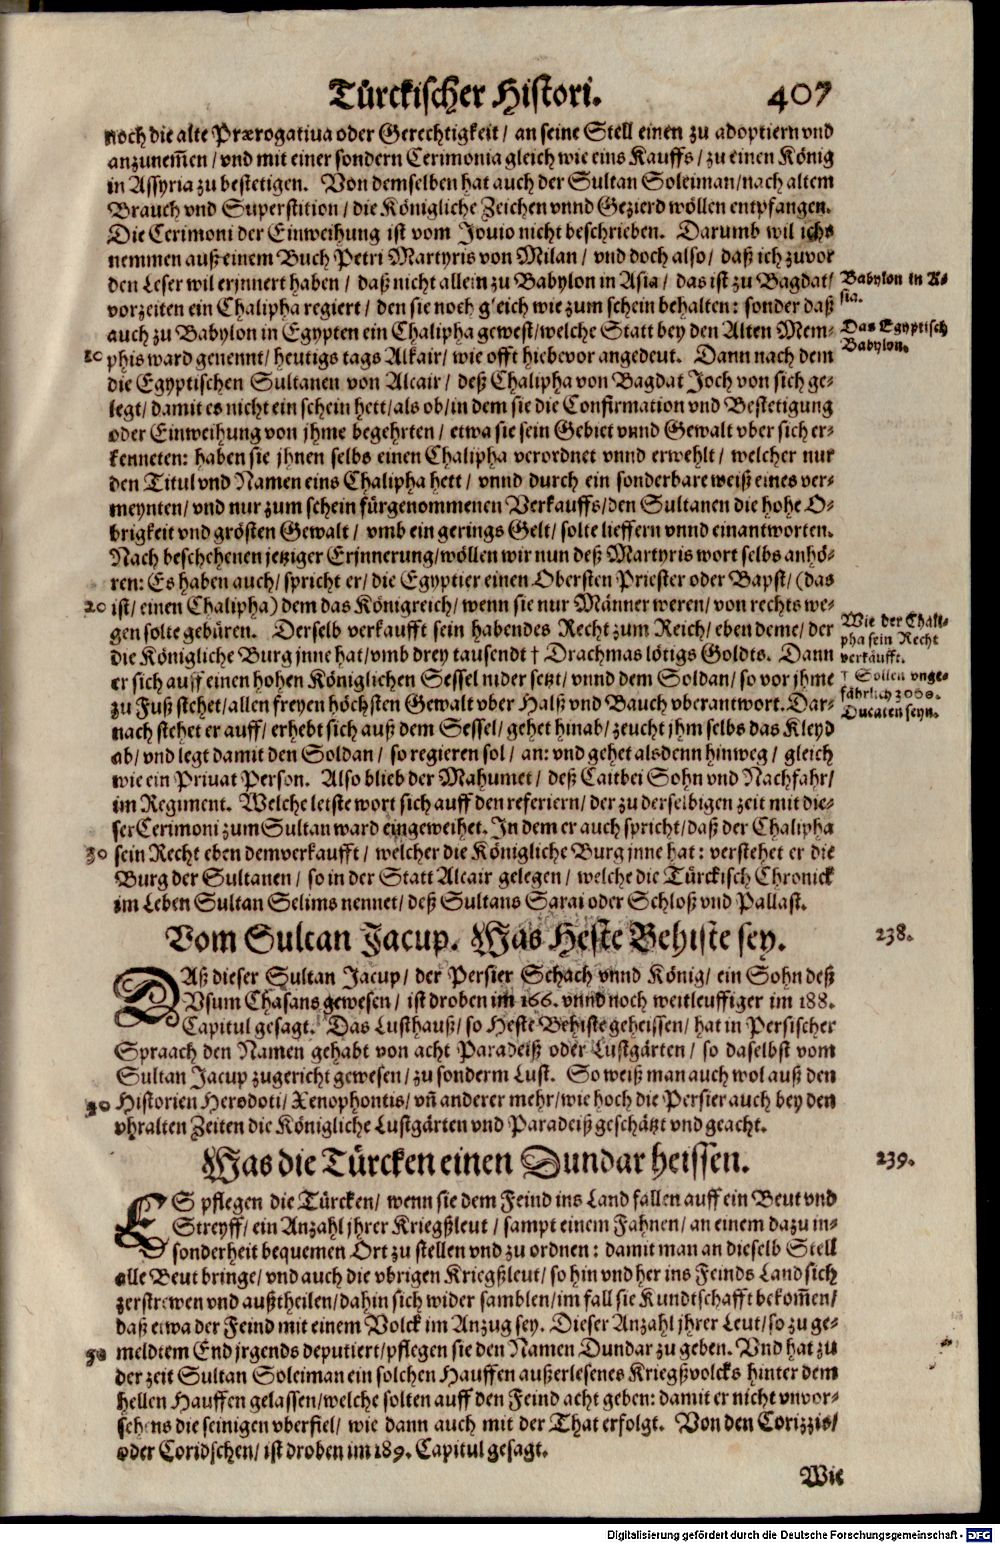 Türckischer Histori. 407
noch die alte Prærogatiua oder Gerechtigkeit / an seine Stell einen zu adoptiern vnd
anzunem̃en / vnd mit einer sondern Cerimonia gleich wie eins Kauffs / zu einen König
in Assyria zu bestetigen. Von demselben hat auch der Sultan Soleiman / nach altem
Brauch vnd Superstition / die Königliche Zeichen vnnd Gezierd wöllen entpfangen.
Die Cerimoni der Einweihung ist vom Jouio nicht beschrieben. Darumb wil ichs
nemmen auß einem Buch Petri Martyris von Milan / vnd doch also / daß ich zuvor
den Leser wil erjnnert haben / daß nicht allein zu Babylon in Asia / das ist zu Bagdat /
Babylon in A-
sia.
vorzeiten ein Chalipha regiert / den sie noch gleich wie zum schein behalten: sonder daß
auch zu Babylon in Egypten ein Chalipha gewest / welche Statt bey den Alten Mem-
Das Egyptisch
Babylon.
10 phis ward genennt / heutigs tags Alkair / wie offt hiebevor angedeut. Dann nach dem
die Egyptischen Sultanen von Alcair / deß Chalipha von Bagdat Joch von sich ge-
legt / damit es nicht ein schein hett / als ob / in dem sie die Confirmation vnd Bestetigung
oder Einweihung von jhme begehrten / etwa sie sein Gebiet vnnd Gewalt vber sich er-
kenneten: haben sie jhnen selbs einen Chalipha verordnet vnnd erwehlt / welcher nur
den Titul vnd Namen eins Chalipha hett / vnnd durch ein sonderbare weiß eines ver-
meynten / vnd nur zum schein fürgenommenen Verkauffs / den Sultanen die hohe O-
brigkeit vnd grösten Gewalt / vmb ein gerings Gelt / solte lieffern vnnd einantworten.
Nach beschehenen jetziger Erjnnerung / wöllen wir nun deß Martyris wort selbs anhö-
ren: Es haben auch / spricht er / die Egyptier einen Obersten Priester oder Bapst / (das
20 ist / einen Chalipha) dem das Königreich / wenn sie nur Männer weren / von rechts we-
gen solte gebüren. Derselb verkaufft sein habendes Recht zum Reich / eben deme / der
Wie der Chali-
pha sein Recht
verkäufft.
die Königliche Burg jnne hat / vmb drey tausendt † Drachmas lötigs Goldts. Dann
er sich auff einen hohen Königlichen Sessel nider setzt / vnnd dem Soldan / so vor jhme
† Sollen vnge-
fährlich 3000.
Ducaten seyn.
zu Fuß stehet / allen freyen höchsten Gewalt vber Halß vnd Bauch vberantwort. Dar-
nach stehet er auff / erhebt sich auß dem Sessel / gehet hinab / zeucht jhm selbs das Kleyd
ab / vnd legt damit den Soldan / so regieren sol / an: vnd gehet alsdenn hinweg / gleich
wie ein Priuat Person. Also blieb der Mahumet / deß Caitbei Sohn vnd Nachfahr /
im Regiment. Welche letste wort sich auff den referiern / der zu derselbigen zeit mit die-
ser Cerimoni zum Sultan ward eingeweihet. In dem er auch spricht / daß der Chalipha
30 sein Recht eben dem verkaufft / welcher die Königliche Burg jnne hat: verstehet er die
Burg der Sultanen / so in der Statt Alcair gelegen / welche die Türckisch Chronick
im Leben Sultan Selims nennet / deß Sultans Sarai oder Schloß vnd Pallast.
Vom Sultan Jacup. Was Heste Behiste sey. 238.
DAß dieser Sultan Jacup / der Persier Schach vnnd König / ein Sohn deß
Vsum Chasans gewesen / ist droben im 166. vnnd noch weitleuffiger im 188.
Capitul gesagt. Das Lusthauß / so Heste Behiste geheissen / hat in Persischer
Spraach den Namen gehabt von acht Paradeiß oder Lustgärten / so daselbst vom
Sultan Jacup zugericht gewesen / zu sonderm Lust. So weiß man auch wol auß den
40 Historien Herodoti / Xenophontis / vñ anderer mehr / wie hoch die Persier auch bey den
vhralten Zeiten die Königliche Lustgärten vnd Paradeiß geschätzt vnd geacht.
Was die Türcken einen Dundar heissen. 239.
ES pflegen die Türcken / wenn sie dem Feind ins Land fallen auff ein Beut vnd
Streyff / ein Anzahl jhrer Kriegßleut / sampt einem Fahnen / an einem dazu in-
sonderheit bequemen Ort zu stellen vnd zu ordnen: damit man an dieselb Stell
alle Beut bringe / vnd auch die vbrigen Kriegßleut / so hin vnd her ins Feinds Land sich
zerstrewen vnd außtheilen / dahin sich wider samblen / im fall sie Kundtschafft bekom̃en /
daß etwa der Feind mit einem Volck im Anzug sey. Dieser Anzahl jhrer Leut / so zu ge-
50 meldtem End jrgends deputiert / pflegen sie den Namen Dundar zu geben. Vnd hat zu
der zeit Sultan Soleiman ein solchen Hauffen außerlesenes Kriegßvolcks hinter dem
hellen Hauffen gelassen / welche solten auff den Feind acht geben: damit er nicht vnvor-
sehens die seinigen vberfiel / wie dann auch mit der That erfolgt. Von den Corizzis /
oder Coridschen / ist droben im 189. Capitul gesagt.
Wie
Digitalisierung gefördert durch die Deutsche Forschungsgemeinschaft - DFG